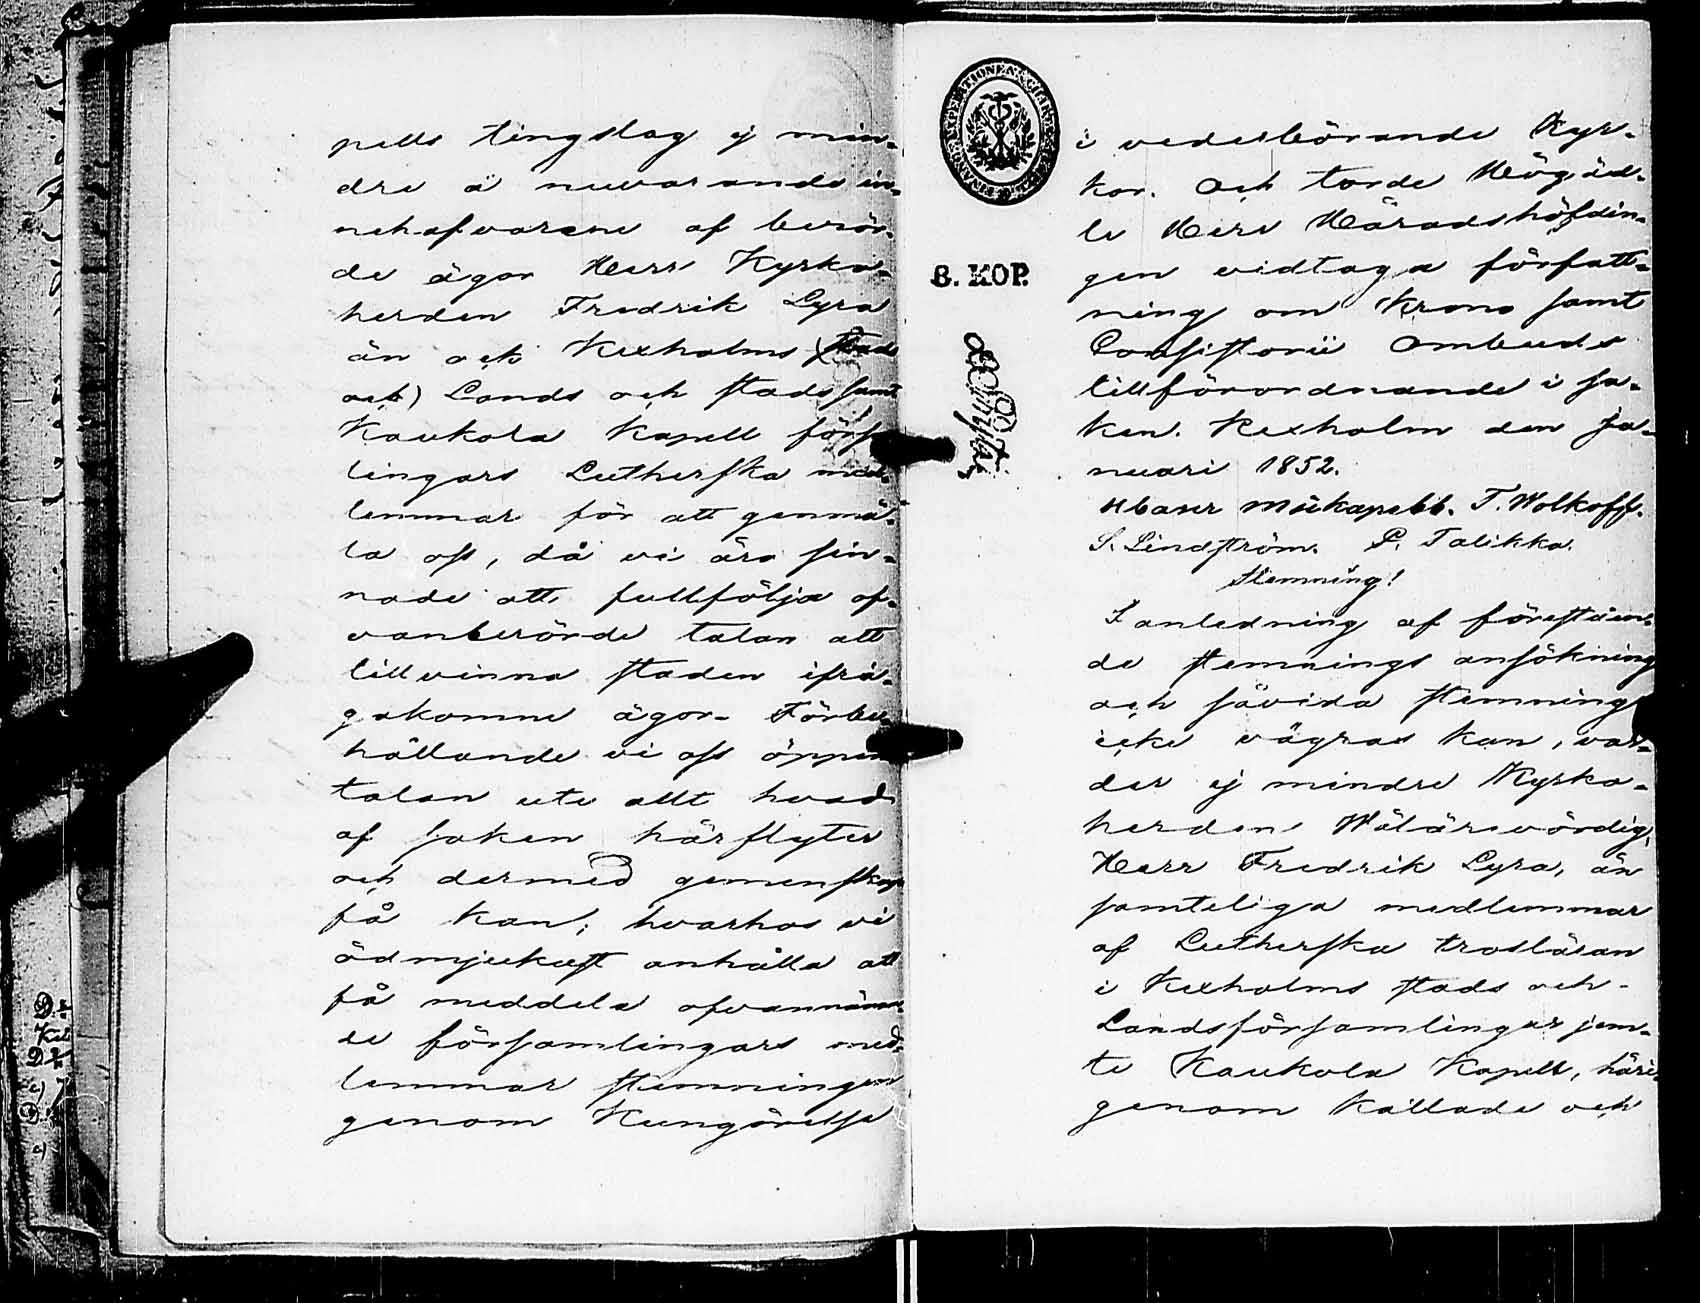 pells tingslag ej min-
dre ä nuvarande in-
nehafvarene af berör-
de ägor Herr Kyrko-
herden Fredrik Lyra
än och Kexholms (Stads
och) Lands och stads samt
Kaukola Kapell förs
lingars Lutherska med-
lemmar för att genmä-
la oss, då vi äro sin-
nade att fullfölja of-
vanberörde talan att
tillvinna staden ifrå-
gakomne ägor. Förbe-
hållande vi oss öppen
talan ute allt hvad
af saken härflyter
och dermed gemenskap
få kan; hvarhos vi
ödmjukast anhålla att
få meddela ofvannämn-
de församlingars med-
lemmar stemningen
genom Kungörelse
i vederbörande Kyr-
kor. Och torde Högäd-
le Herr Häradshöfdin-
gen vidtaga författ-
ning om Krono samt
Consistorii Ombuds
tillförordnande i sa-
ken. Kexholm den Ja-
nuari 1852.
T. Wolkoff.
S. Lindström. P. Talikka.
Stemning!
I anledning af föreståen-
de stemnings ansökning
och såvida stemning
icke vägras kan, var-
der ej mindre Kyrko-
herden Wälärevördig,
Herr Fredrik Lyra, än
samteliga medlemmar
af Lutherska trosläran
i Kexholms stads och
Landsförsamlingar jem-
te Kaukola Kapell, häri-
genom kallade och
8. KOP.